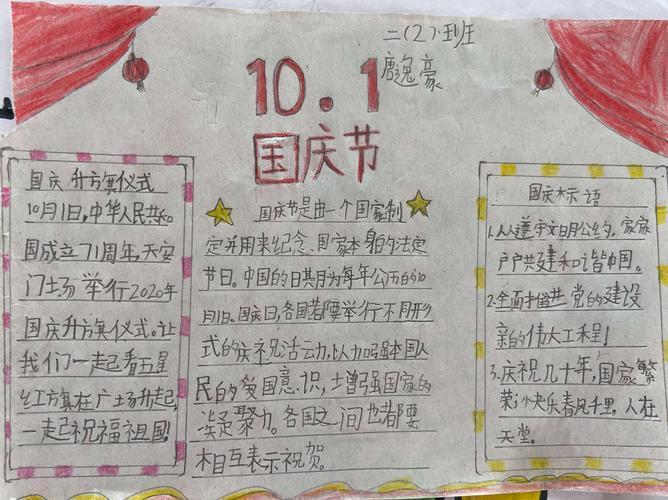 二(2)班
唐逸豪
10.1
国庆节
国庆升旗仪式
10月1日,中华人民共和
国成立71周年,天安
门广场举行2020年
国庆升旗仪式。让
我们一起看五星
红旗在广场升起,
一起祝福祖国!
国庆节是由一个国家制
定并用来纪念、国家本身的法定
节日。中国的日其月为每年公历的10
月1日。国庆日,各国都要举行不同形
式的庆祝活动,以力加强本国人
民的爱国意识,增强国家的
凝聚力。各国之间也都要
相互表示祝贺。
国庆标语
1.人人遵守文明公约,家家
户户共建和谐中国。
2.全面推进党的建设
新的伟大工程!
3.庆祝几十年,国家繁
荣;快乐春风千里,人在
天堂。